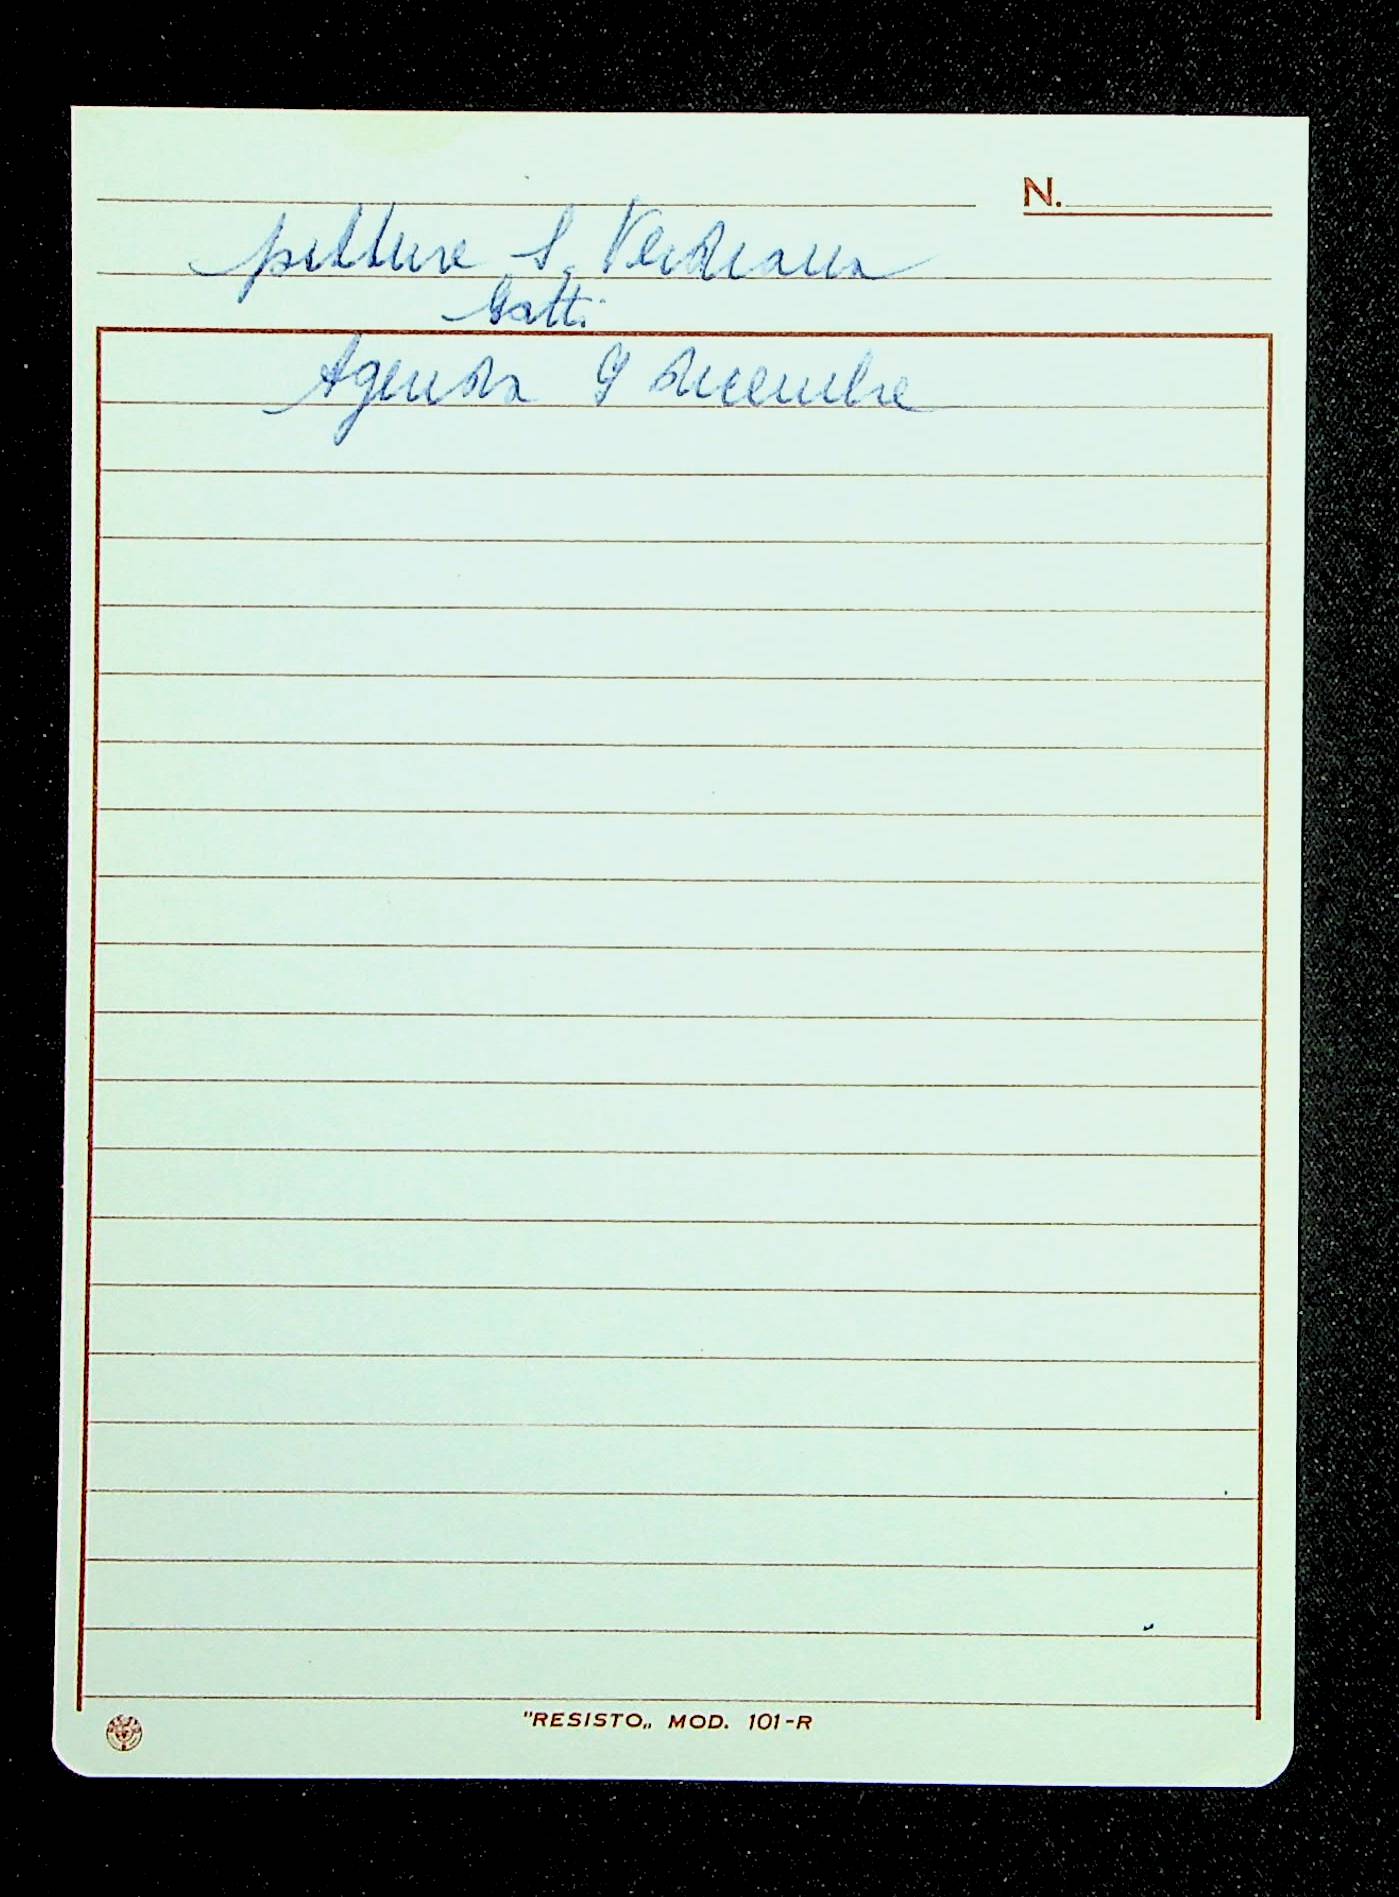 N.
pitture S. Verdiana
Gatti
Agenda 9 dicembre
"RESISTO„ MOD. 101-R